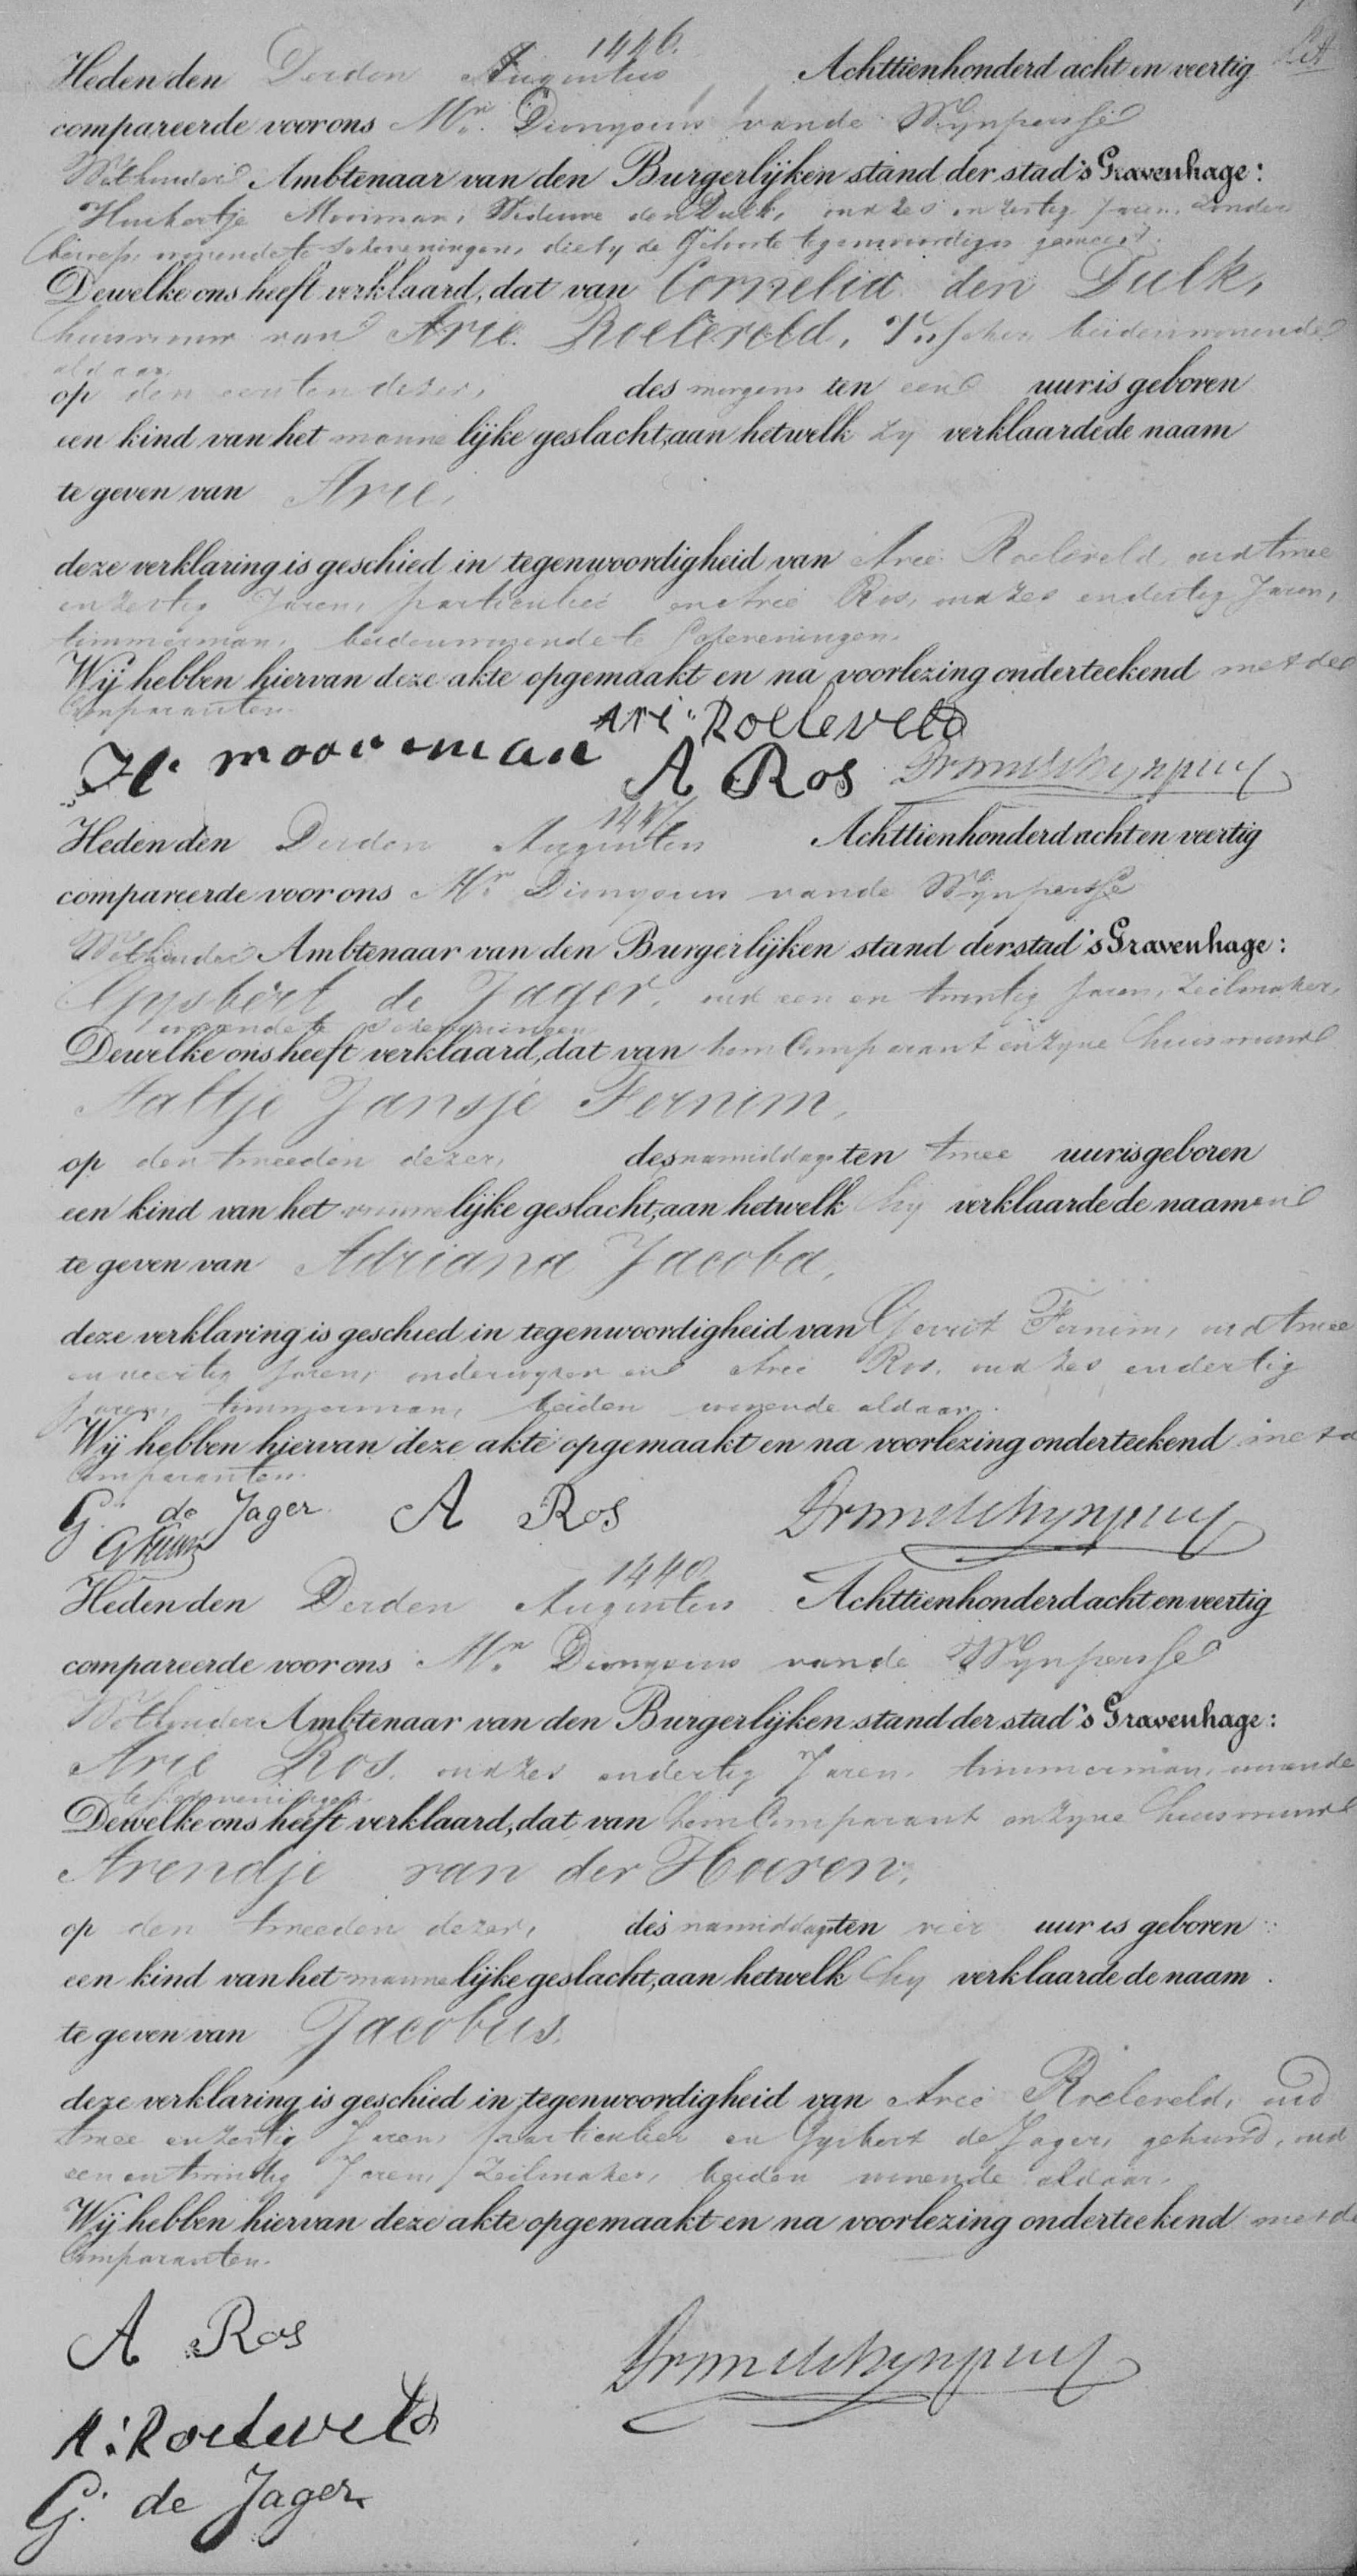 1446.
Heden den Derden Augustus Achttienhonderd acht en veertig
compareerde voor ons Mr. Dionysius van de Wynpersse
Wethouder Ambtenaar van den Burgerlijken stand der stad 's Gravenhage:
Huibertje Mooiman, Weduwe den Dulk, oud zes en zestig Jaren, zonder
beroep, wonende te Scheveningen, die by de Geboorte tegenwoordig is geweest.
Dewelke ons heeft verklaard, dat van Cornelia den Dulk,
huisvrouw van Arie Roeleveld, Visscher, beiden wonende
aldaar,
op den eersten dezer, des morgens ten een uur is geboren
een kind van het mannelijke geslacht, aan hetwelk zy verklaarde de naam
te geven van Arie,
deze verklaring is geschied in tegenwoordigheid van Arie Roeleveld, oud twee
en zestig Jaren, particulier en Arie Ros, oud zes en dertig Jaren,
timmerman, beiden wonende te Scheveningen.
Wij hebben hiervan deze akte opgemaakt en na voorlezing onderteekend met de
Comparanten.
Ari: Roeleveld
H. mooi eman A Ros
1447
Heden den Derden Augustus Achttienhonderd acht en veertig
compareerde voor ons Mr. Dionysius van de Wynpersse
Wethouder Ambtenaar van den Burgerlijken stand der stad 's Gravenhage:
Gysbert de Jager, oud een en twintig Jaren, Zeilmaker,
wonende te Scheveningen
Dewelke ons heeft verklaard, dat van hem Comparant en zyne huisvrouw
Aaltje Jansje Fernim,
op den tweeden dezer, des namiddags ten twee uur is geboren
een kind van het vrouwelijke geslacht, aan hetwelk hy verklaarde de naamen
te geven van Adriana Jacoba,
deze verklaring is geschied in tegenwoordigheid van Gerrit Fernim, oud twee
en veertig Jaren, onderwyzer en Arie Ros, oud zes en dertig
Jaren, timmerman, beiden wonende aldaar.
Wij hebben hiervan deze akte opgemaakt en na voorlezing onderteekend met de
Comparanten.
G. de Jager A Ros
1448
Heden den Derden Augustus Achttienhonderd acht en veertig
compareerde voor ons Mr. Dionysius van de Wynpersse
Wethouder Ambtenaar van den Burgerlijken stand der stad 's Gravenhage:
Arie Ros, oud zes en dertig Jaren, timmerman, wonende
te Scheveningen
Dewelke ons heeft verklaard, dat van hem Comparant en zyne huisvrouw
Arendje van der Hoeven,
op den tweeden dezer, des namiddags ten vier uur is geboren
een kind van het mannelijke geslacht, aan hetwelk hy verklaarde de naam
te geven van Jacobus,
deze verklaring is geschied in tegenwoordigheid van Arie Roeleveld, oud
twee en zestig Jaren, particulier en Gysbert de Jager, gehuwd, oud
een en twintig Jaren, Zeilmaker, beiden wonende aldaar.
Wij hebben hiervan deze akte opgemaakt en na voorlezing onderteekend met de
Comparanten.
A Ros
A: Roeleveld
G. de Jager